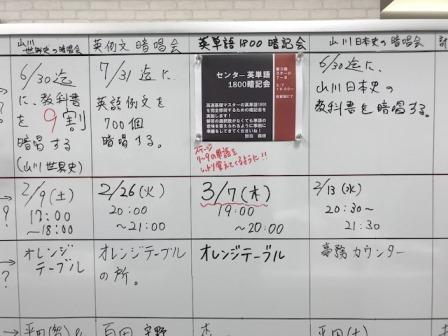 山川
世界史の暗唱会
6/30迄
に、教科書
を9割
暗唱する
(山川世界史)
2/9(土)
17:00
~18:00
オレンジ
テーブル
英例文暗唱会
7/31迄に、
英語例文を
700個
暗唱する。
2/26(火)
20:00
~21:00
オレンジテーブル
の所。
英単語1800暗記会
センター英単語
1800暗記会
ステージ
7~9の単語を
しっかり覚えてくるように!!
3/7(木)
19:00
~20:00
オレンジテーブル
山川日本史の暗唱会
6/30迄に、
山川日本史の
教科書を暗唱する
2/13(水)
20:30~
21:30
事務カウンター